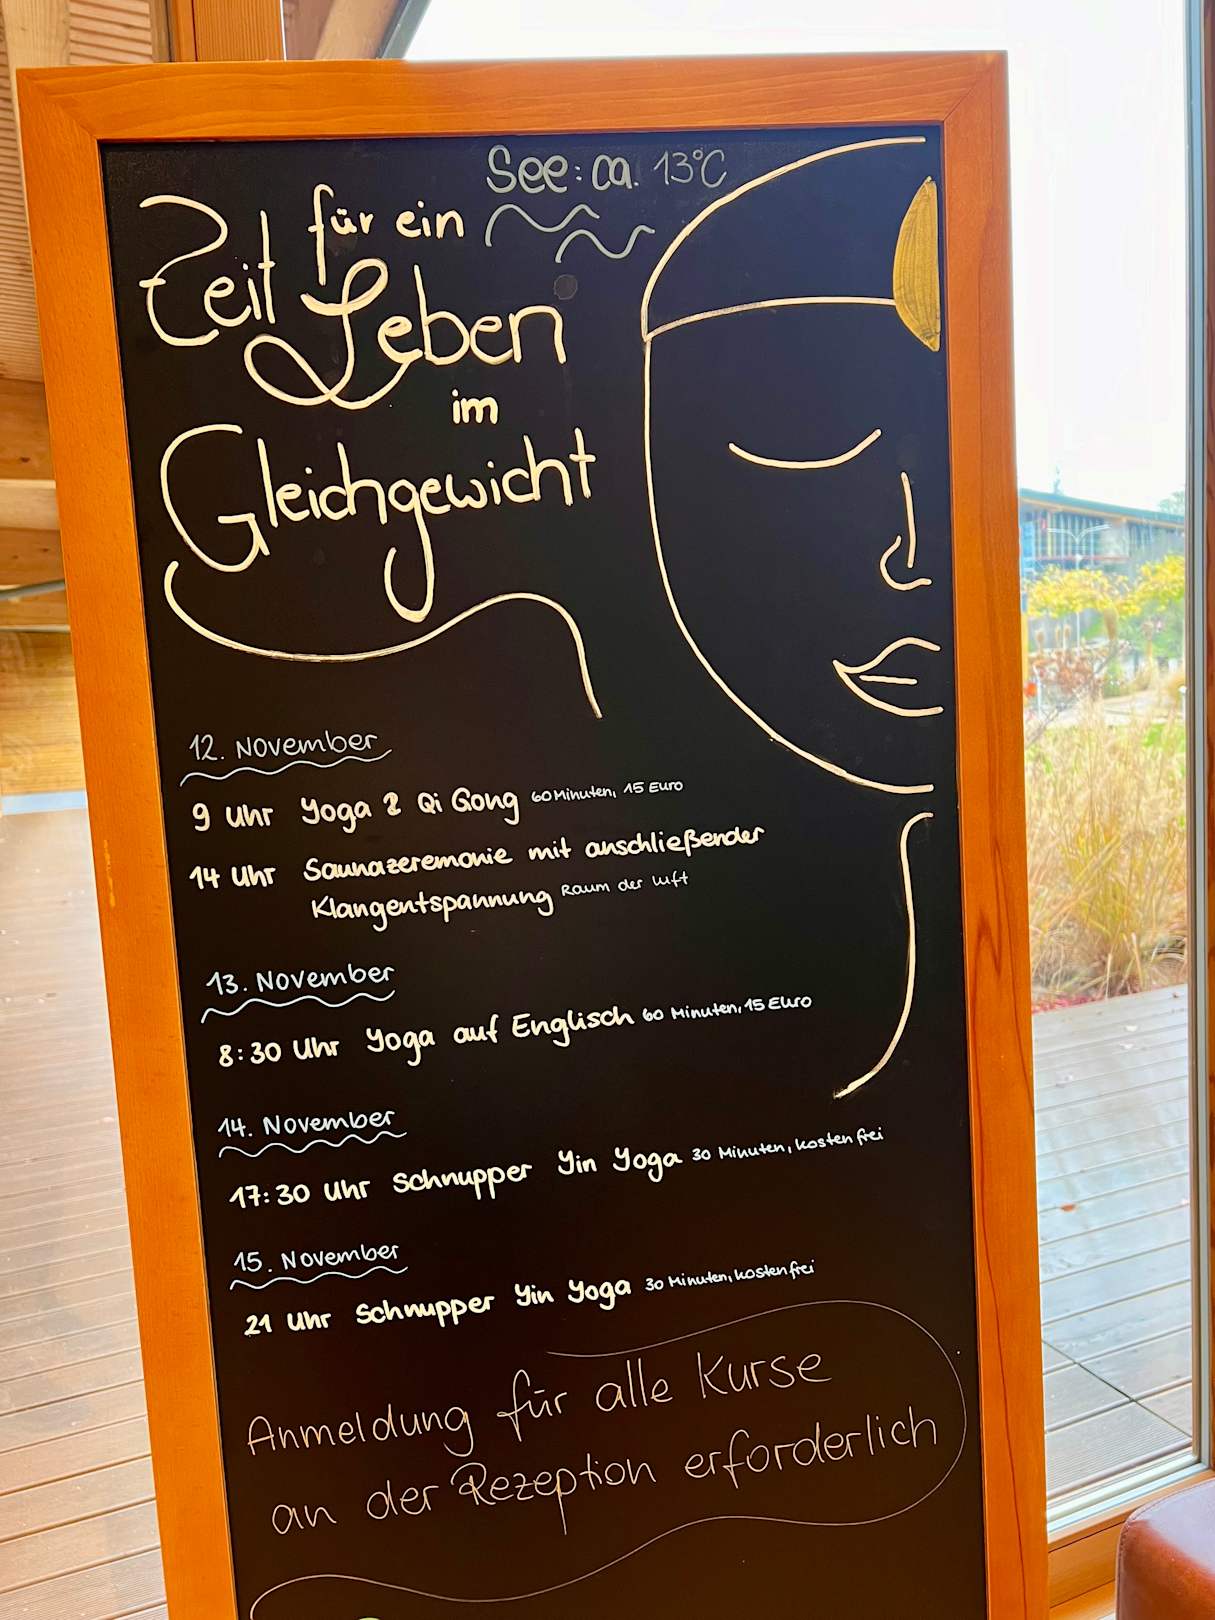 See: ca. 13°C
Zeit für ein
Leben
im
Gleichgewicht
12. November
9 Uhr Yoga & Qi Gong 60 Minuten, 15 Euro
14 Uhr Saunazeremonie mit anschließender
Klangentspannung Raum der Luft
13. November
8:30 Uhr Yoga auf Englisch 60 Minuten, 15 Euro
14. November
17:30 Uhr Schnupper Yin Yoga 30 Minuten, kostenfrei
15. November
21 Uhr Schnupper Yin Yoga 30 Minuten, kostenfrei
Anmeldung für alle Kurse
an der Rezeption erforderlich